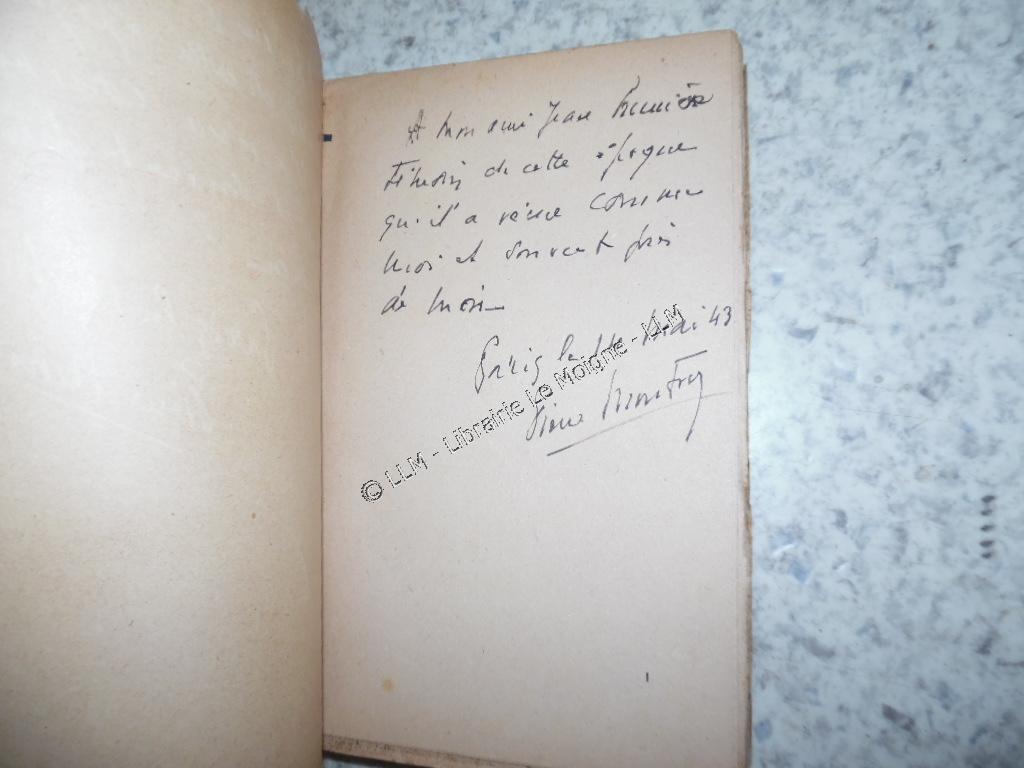 A mon ami Jean
témoin de cette époque
qu'il a vécue comme
moi et souvent près
de moi
Paris le Mai 43
Pierre
© LLM - Librairie Le Moigne - LLM